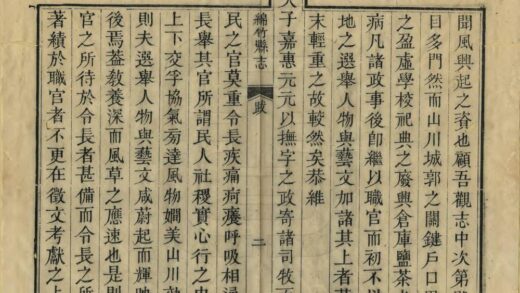 聞風興起之資也顧吾觀志中次第
目多門然而山川城郭之關鍵戶口
之盈虛學校祀典之廢興倉庫鹽茶
病凡諸政事後卽繼以職官而初不以
地之選舉人物與藝文加諸其上者
末輕重之故較然矣恭維
天子嘉惠元元以撫字之政寄諸司牧
綿竹縣志 跋 二
民之官莫重令長疾痛疴癢呼吸相
長舉其官所謂民人社稷實心行之
上下交孚協氣旁達風物嫺美山川
則夫選舉人物與藝文咸蔚起而輝映
後焉蓋教養深而風草之應速也是
官之所待於令長者甚備而令長之所
著績於職官者不更在徵文考獻之上